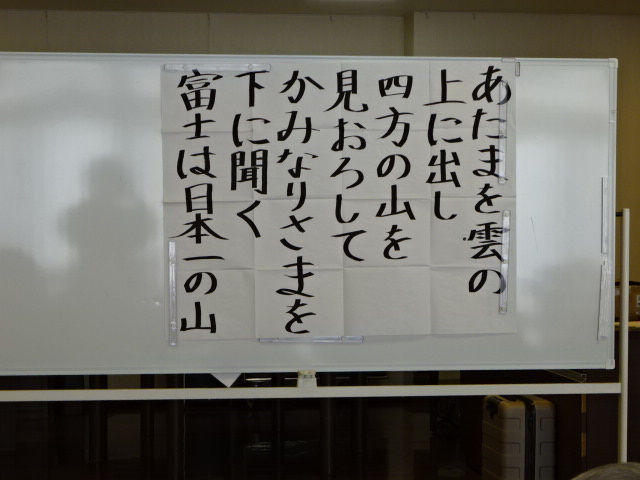 あたまを雲の
上に出し
四方の山を
見おろして
かみなりさまを
下に聞く
富士は日本一の山